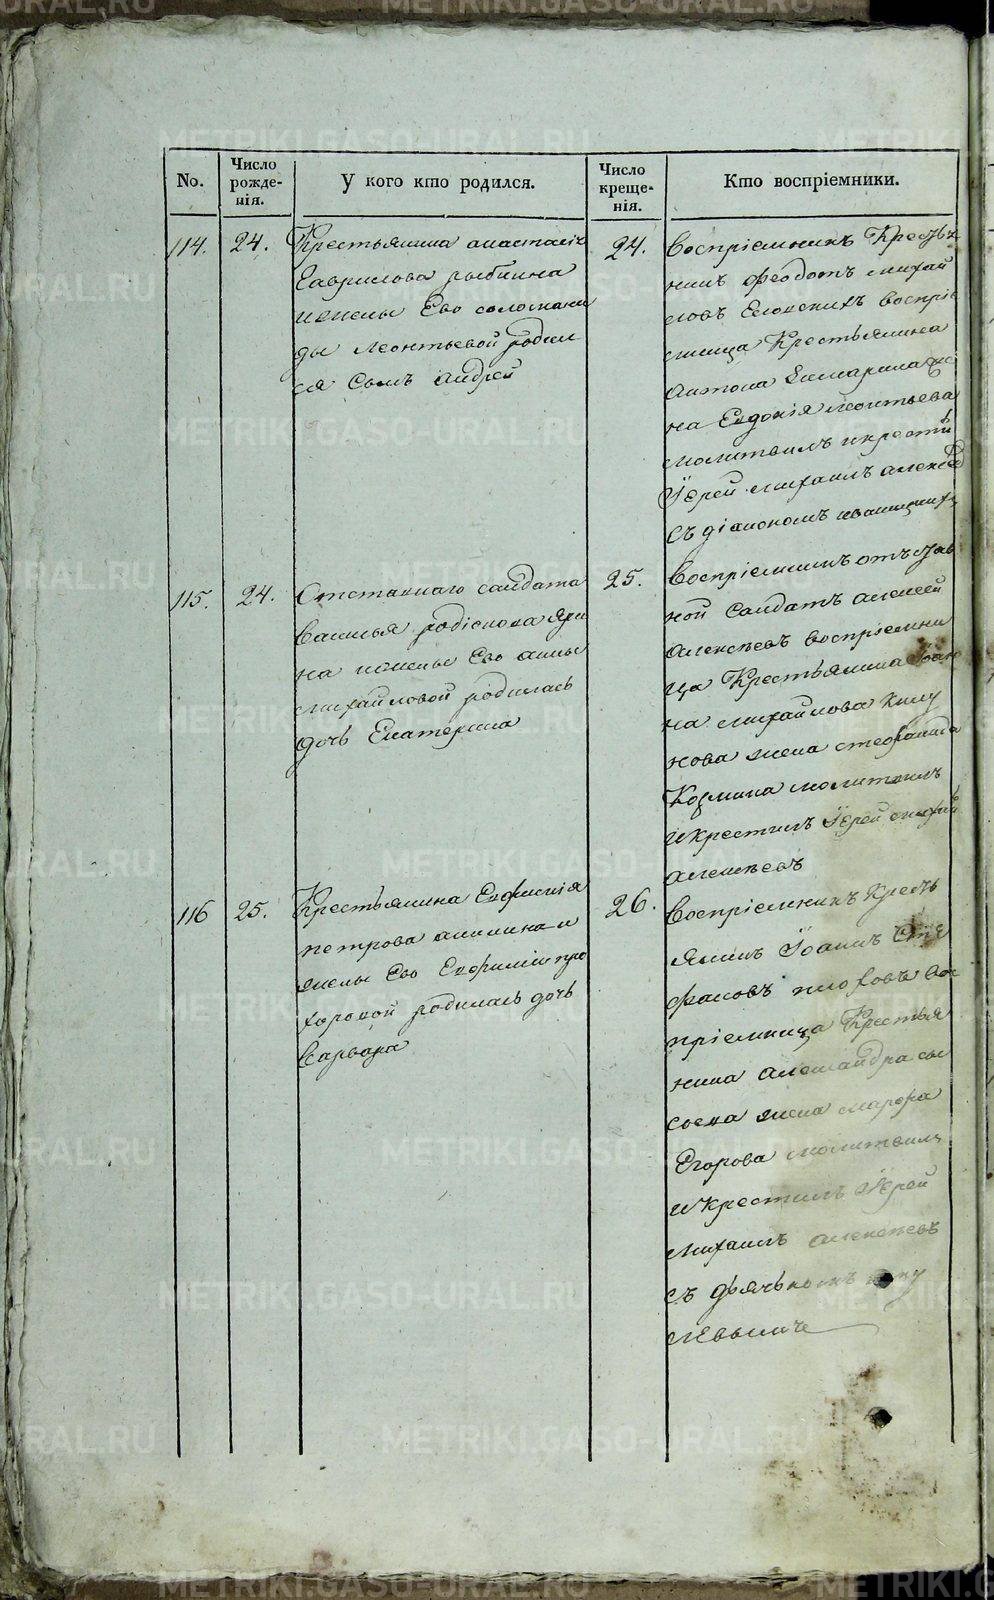 No.
Число рожденія.
У кого кто родился.
Число крещенія.
Кто воспріемники.
114.
24.
Крестьянина анастасія
Гаврилова рыбкина
и жены Его соломани
ды леонтьевой родил
ся Сынъ андрей
24.
воспріемникъ Крестья
нинъ феодотъ михай
ловъ воспріе
мница Крестьянина
антона
на Евдокія леонтьева
молитвилъ и крестилъ
Іерей михаилъ алексѣе
съ діакономъ
115.
24.
Отставнаго салдата
василья родіонова яри
на и жены Его анны
михайловой родилась
дочь Екатерина
25.
воспріемникъ отъстав
ной Салдатъ алексей
алексѣевъ воспріемни
ца Крестьянина Іоан
на михайлова
нова жена стефанида
Козмина молитвилъ
и крестилъ Іерей михаилъ
алексѣевъ
116
25.
Крестьянина Евфимія
петрова аникина и
жены Его Евфиміи про
хоровой родилась дочь
варвара
26.
воспріемникъ Кресть
янинъ Іоаннъ Сте
фановъ вос
пріемница Крестья
нина александра сы
соева жена марфа
Егорова молитвилъ
и крестилъ Іерей
михаилъ алексѣевъ
съ дьячькомъ
METRIKI.GASO-URAL.RU